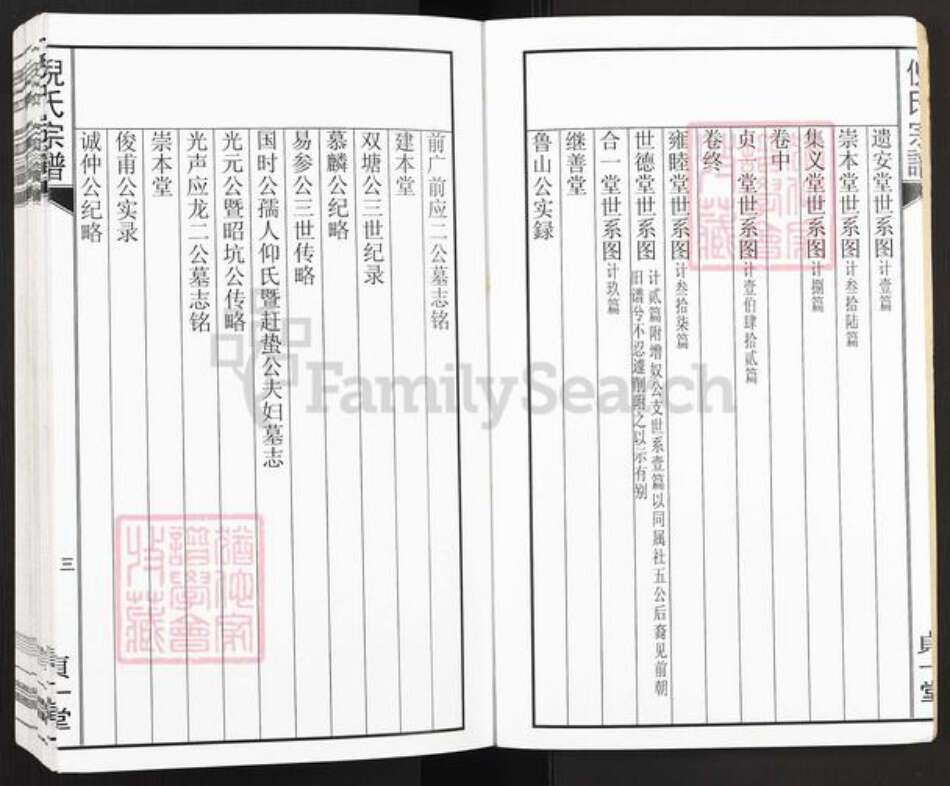 倪氏宗譜
遗安堂世系图计壹篇
崇本堂世系图计叁拾陆篇
集义堂世系图计捌篇
卷中
贞一堂世系图计壹伯肆拾贰篇
卷终
雍睦堂世系图计叁拾柒篇
世德堂世系图计贰篇附增奴公支世系壹篇以同属社五公后裔见前朝
旧谱兮不忍遽削附之以示有别
合一堂世系图计玖篇
继善堂
鲁山公实録
貞一堂
前广前应二公墓志铭
建本堂
双塘公三世纪录
慕麟公纪略
易参公三世传略
国时公孺人仰氏暨赶蛰公夫妇墓志
光元公暨昭坑公传略
光声应龙二公墓志铭
崇本堂
俊甫公实录
诚仲公纪略
倪氏宗譜
三
貞一堂
FamilySearch